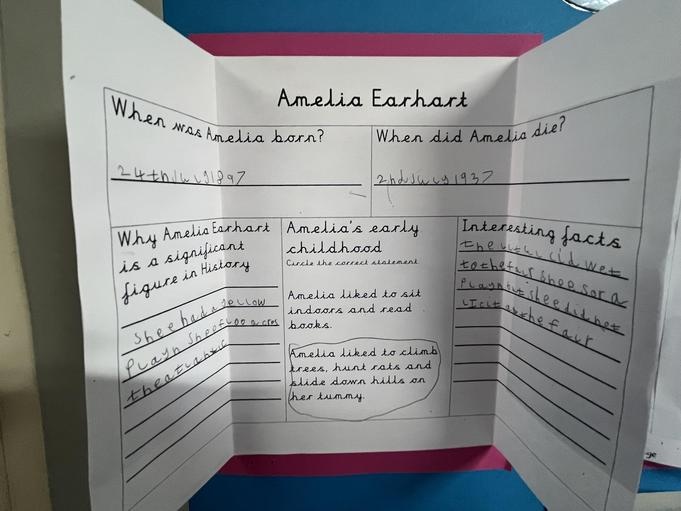 Amelia Earhart
When was Amelia born?
24th July 1897
When did Amelia die?
2nd July 1937
Why Amelia Earhart
is a significant
figure in History
Shee had a yellow
playn shee floo acros
the atlantic
Amelia's early
childhood
Circle the correct statement
Amelia liked to sit
indoors and read
books.
Amelia liked to climb
trees, hunt rats and
slide down hills on
her tummy.
Interesting facts
wet
to the fair shee sor a
playn but shee did not
lict at the fair
ge